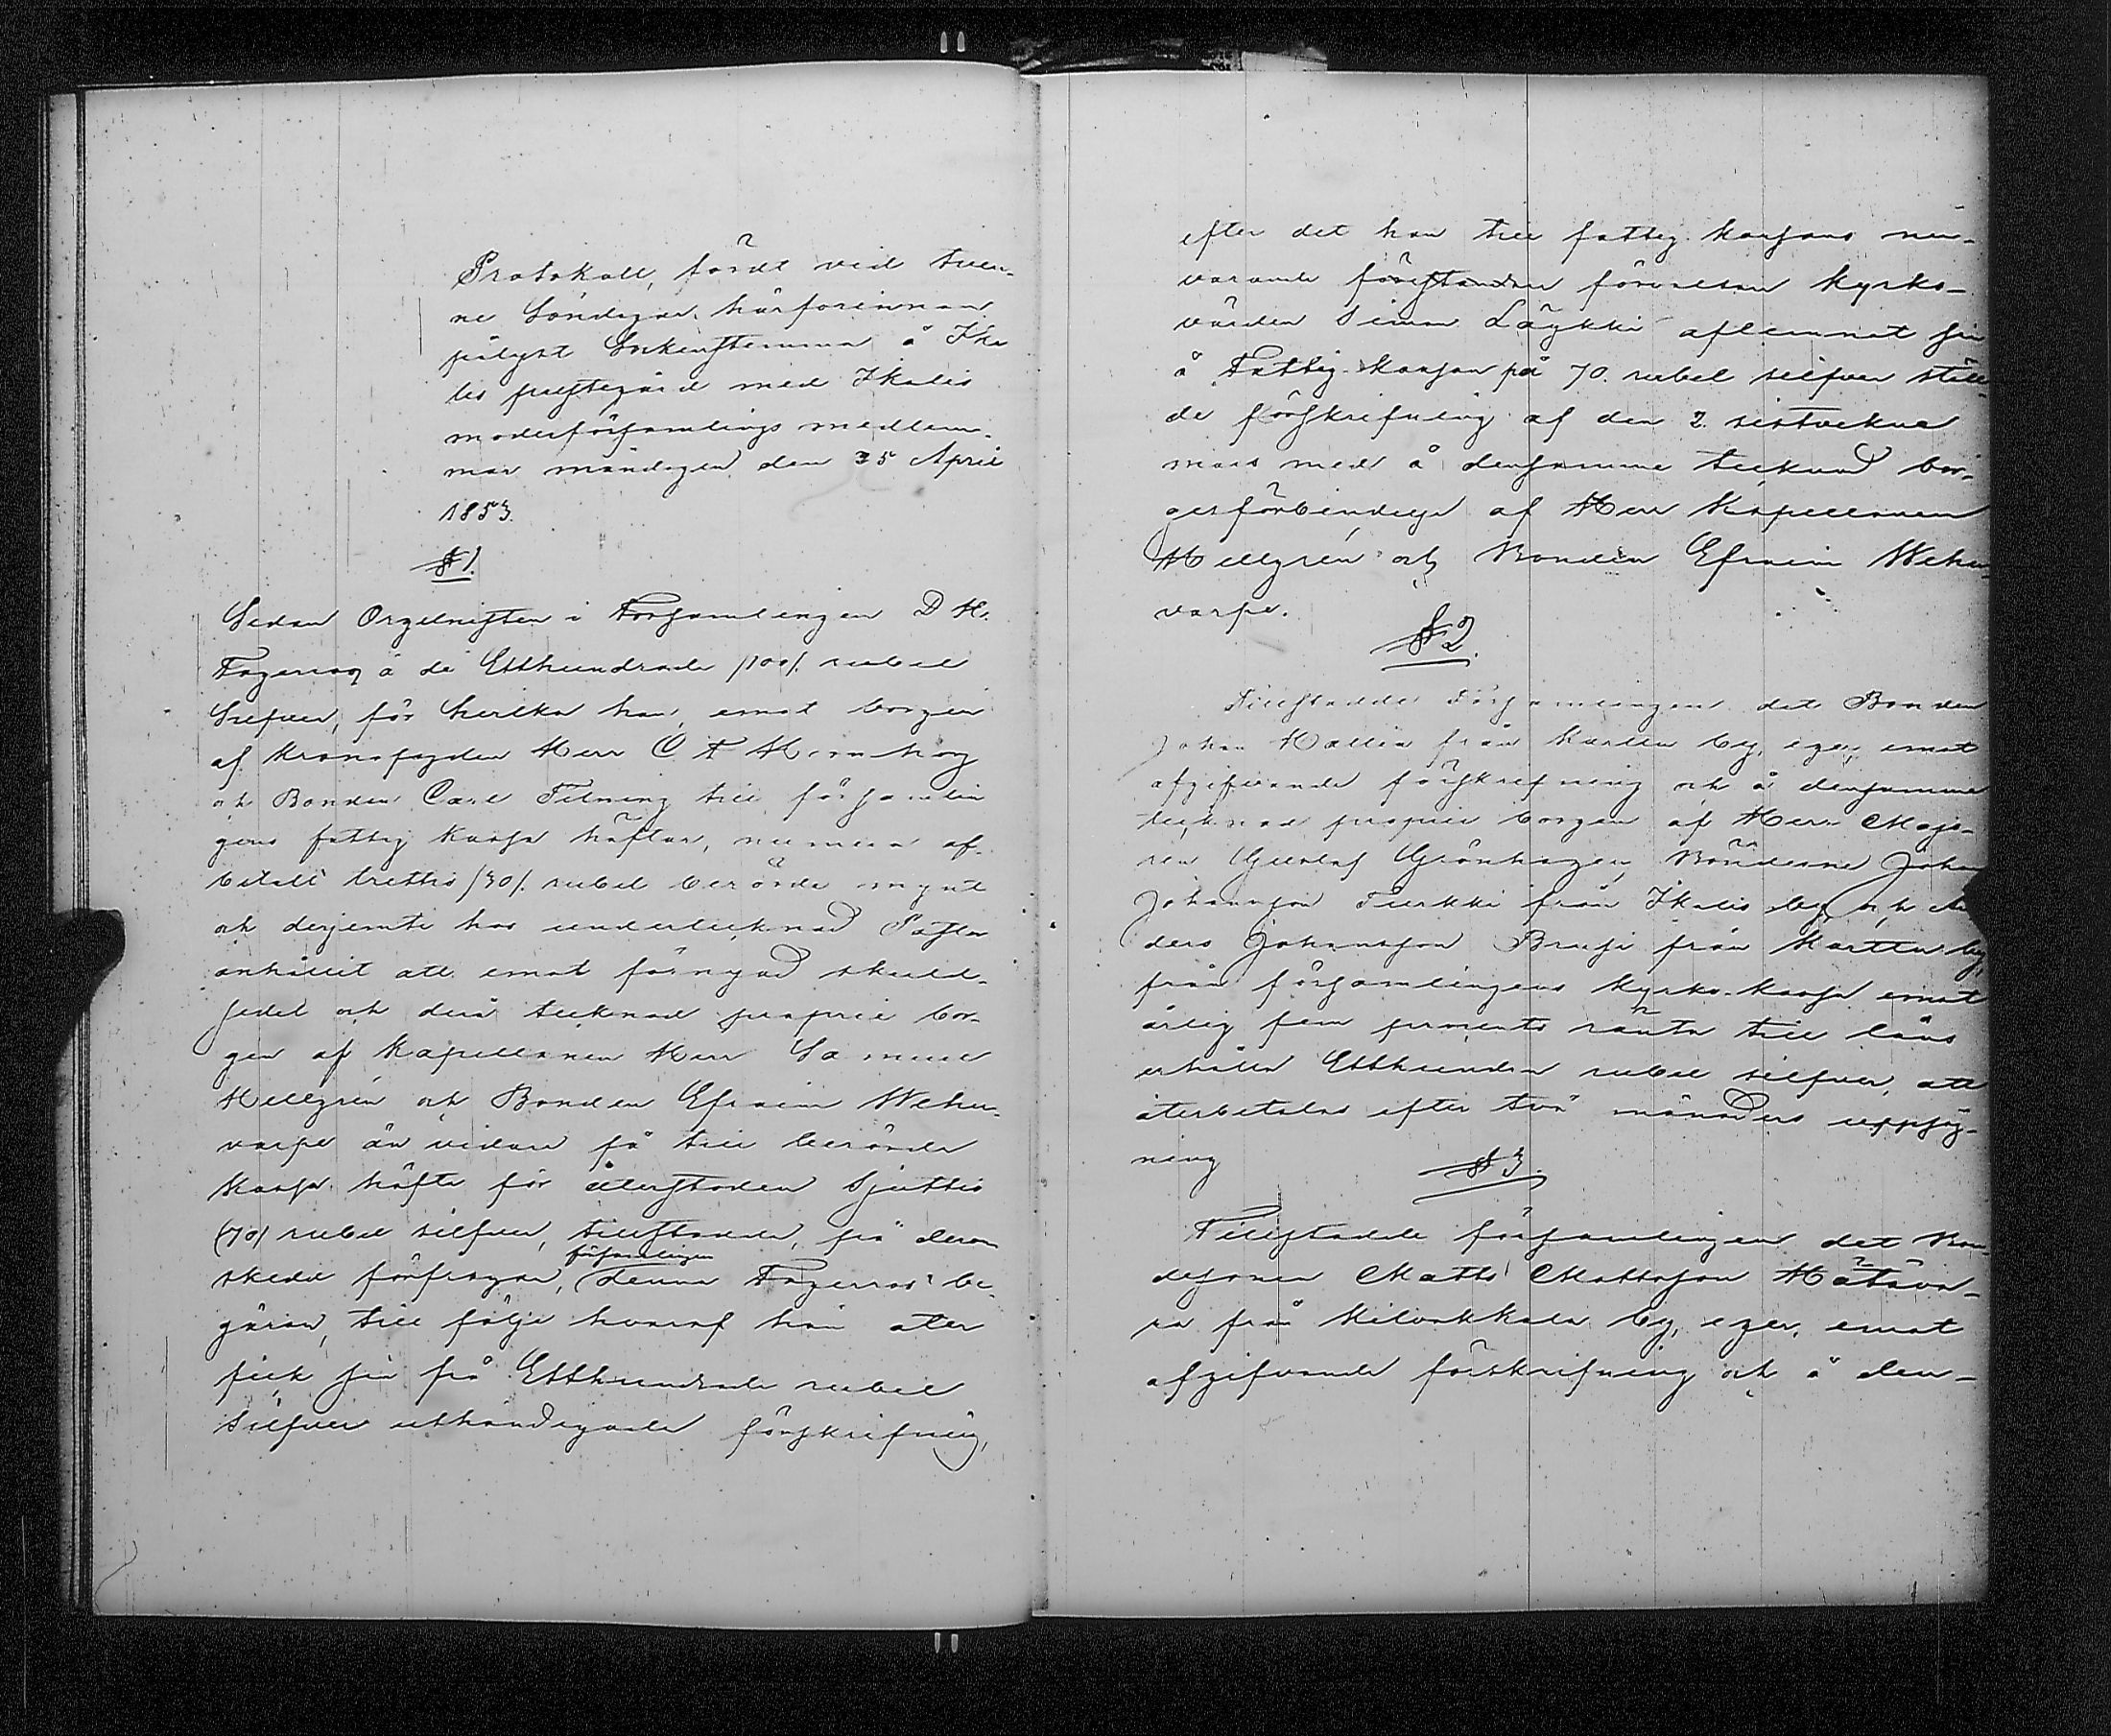 Protokoll, fördt vid tven-
ne Söndagar härförinnan
pålyst Sockenstemma å Ika
lis prestegård med Ikalis
moderförsamlings medlem-
mar måndagen den 25 April
1853.
§ 1.
Sedan Orgelnisten i Församlingen D H.
Fagerroos å de Etthundrade /100/. rubel
Silfver, för hvilka han, emot borgen
af Kronofogden Herr C A Hornborg
och Bonden Carl Filning till församlin
gens fattig kassa häftar, numera af-
betalt trettio /30/. rubel berörde mynt
och derjemte hos undertecknad Pastor
anhållit att emot förnyad skuld-
sedel och derå tecknad proprie bor-
gen af Kapellanen Herr Samuel
Hellgrén och Bonden Efraim Wehu-
varpe än vidare få till berörde
Kassa häfta för återstoden Sjuttio
(70) rubel silfver, tillstadde, på derom
skedd förfrågan, församlingen denna Fagerroos' be-
gäran, till följe hvaraf han åter
fick sin på Etthundrade rubel
Silfver uthändigade förskrifning,
efter det han till fattig-kassans nu-
varande föreståndare kyrko-
värden Simon Läykki aflemnat sin
å Fattig-Kassan på 70. rubel silfver ställ-
de förskrifning af den 2. sistvekne
mars med å densamma tecknad bor-
gesförbindelse af Herr Kapellanen
Hellgrén och Bonden Efraim Wehu-
varpe.
§ 2.
Tillstadde Församlingen det Bonden
Johan Hallia från Karttu by, eger, emot
afgifvande förskrifning och å densamma
tecknad proprie borgen af Herr Majo-
ren Gustaf Grönhagen, Bönderne Johan
Johansson Turkki från Ikalis by och An
ders Johansson Brusi från Karttu by,
från församlingens Kyrko-Kassa emot
årlig fem procents ränta till låns
erhålla Etthundra rubel silfver, att
återbetalas efter två månaders uppsäg-
ning
§ 3.
Tillstadde församlingen det Bon-
desonen Matts Mattsson Hätäva-
ra från Kilvakkala by, eger, emot
afgifvande förskrifning och å den-